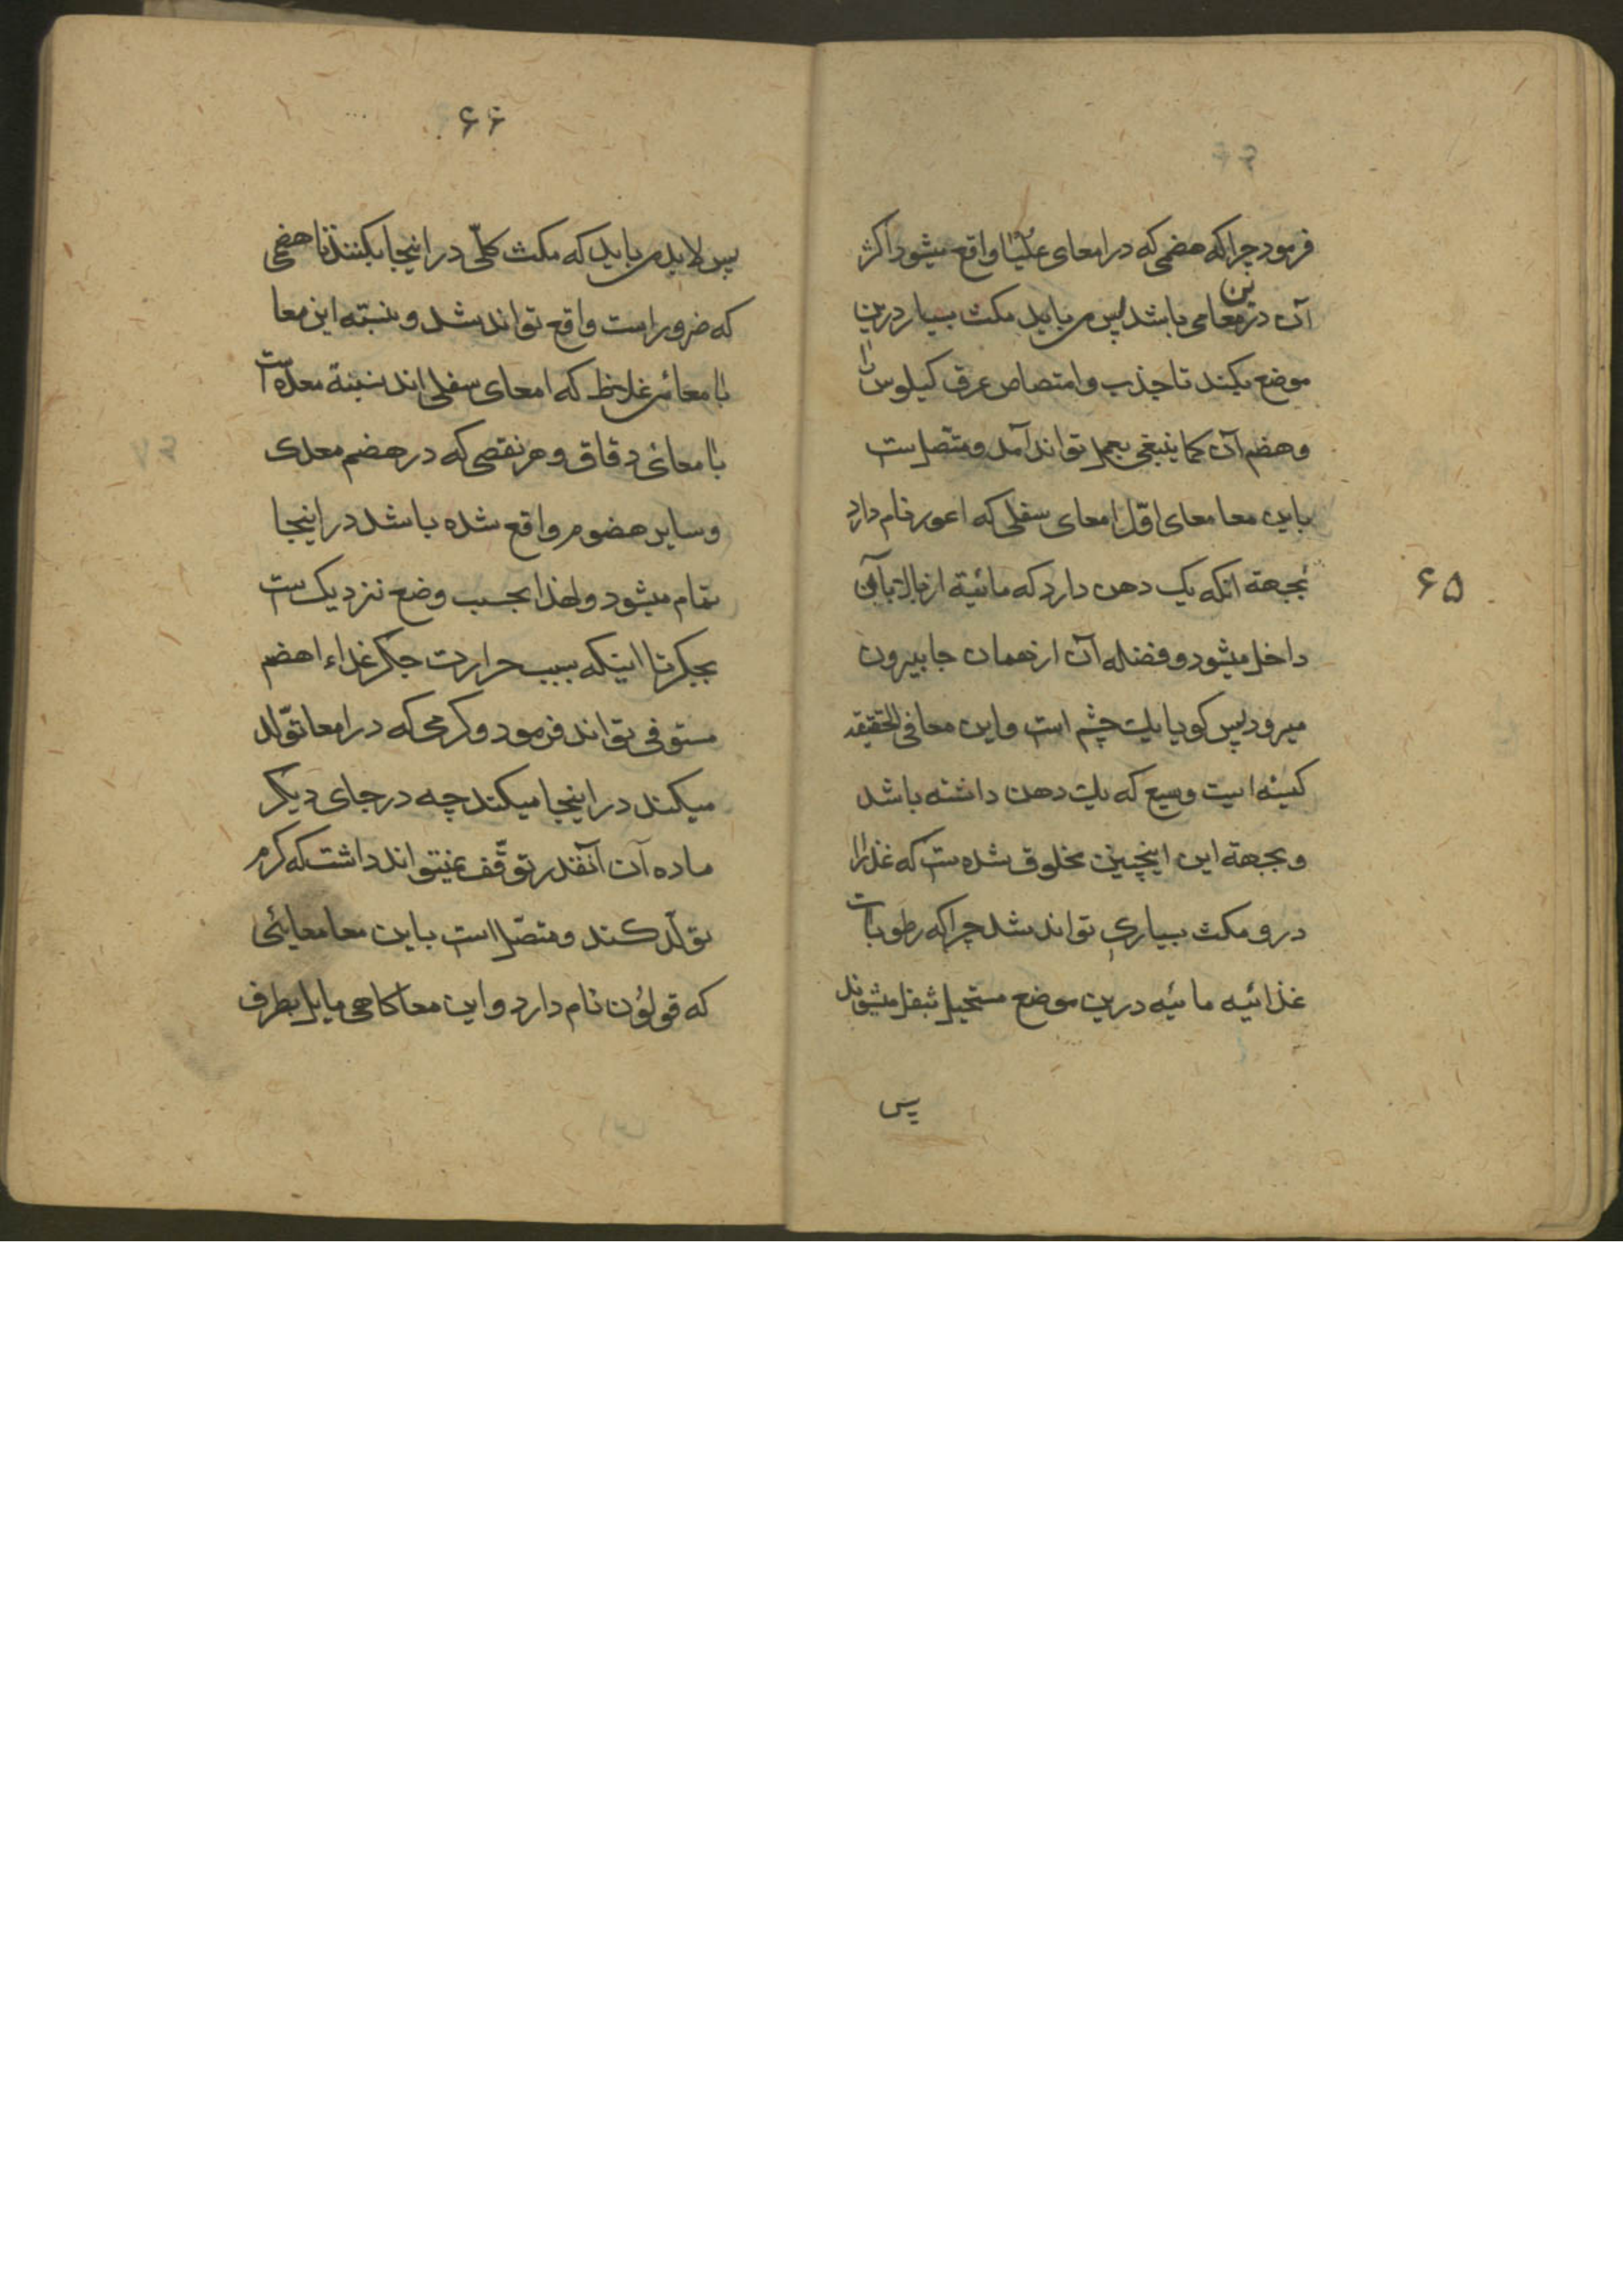 ۶۵
فرمود چراکه هضمی که در امعای علیا واقع میشود اکثر
آن درین معا می باشد پس می باید مکث بسیار درین
موضع بکند تا جذب و امتصاص عرق کیلوس را
و هضم آن کما ینبغی بعمل تواند آمد و متصل ست
باین معا معای اول امعای سفلی که اعور نام دارد
بجهة انکه یک دهن دارد که مائیة از بالا بآن
داخل میشود و فضله آن از همان جا بیرون
میرود پس کویا یک چشم است و این معا فی الحقیقه
کیسه ایست وسیع که یک دهن داشته باشد
و بجهة این اینچنین مخلوق شده ست که غذا را
درو مکث بسیاری تواند شد چراکه رطوبات
غذائیه مائیه درین موضع مستحیل بثفل میشوند
پس
۶۶
پس لابد می باید که مکث کلّی در اینجا بکنند تا هضمی
که ضرور است واقع تواند شد و نسبته این معا
با معائی غلاظ که امعای سفلی اند نسبة معده است
با معائی دقاق و هر نقصی که در هضم معدی
و سایر هضوم واقع شده باشد در اینجا
تمام میشود و لهذا بحسب وضع نزدیک ست
بجکر تا اینکه بسبب حرارت جکر غذاء را هضم
مستوفی تواند فرمود و کرمی که در امعا تولّد
میکند در اینجا میکند چه در جای دیکر
ماده آن آنقدر توقّف نمیتواند داشت که کرم
تولّد کند و متصّل است باین معا معایئی
که قولوُن نام دارد و این معا کاهی مایل بطرف